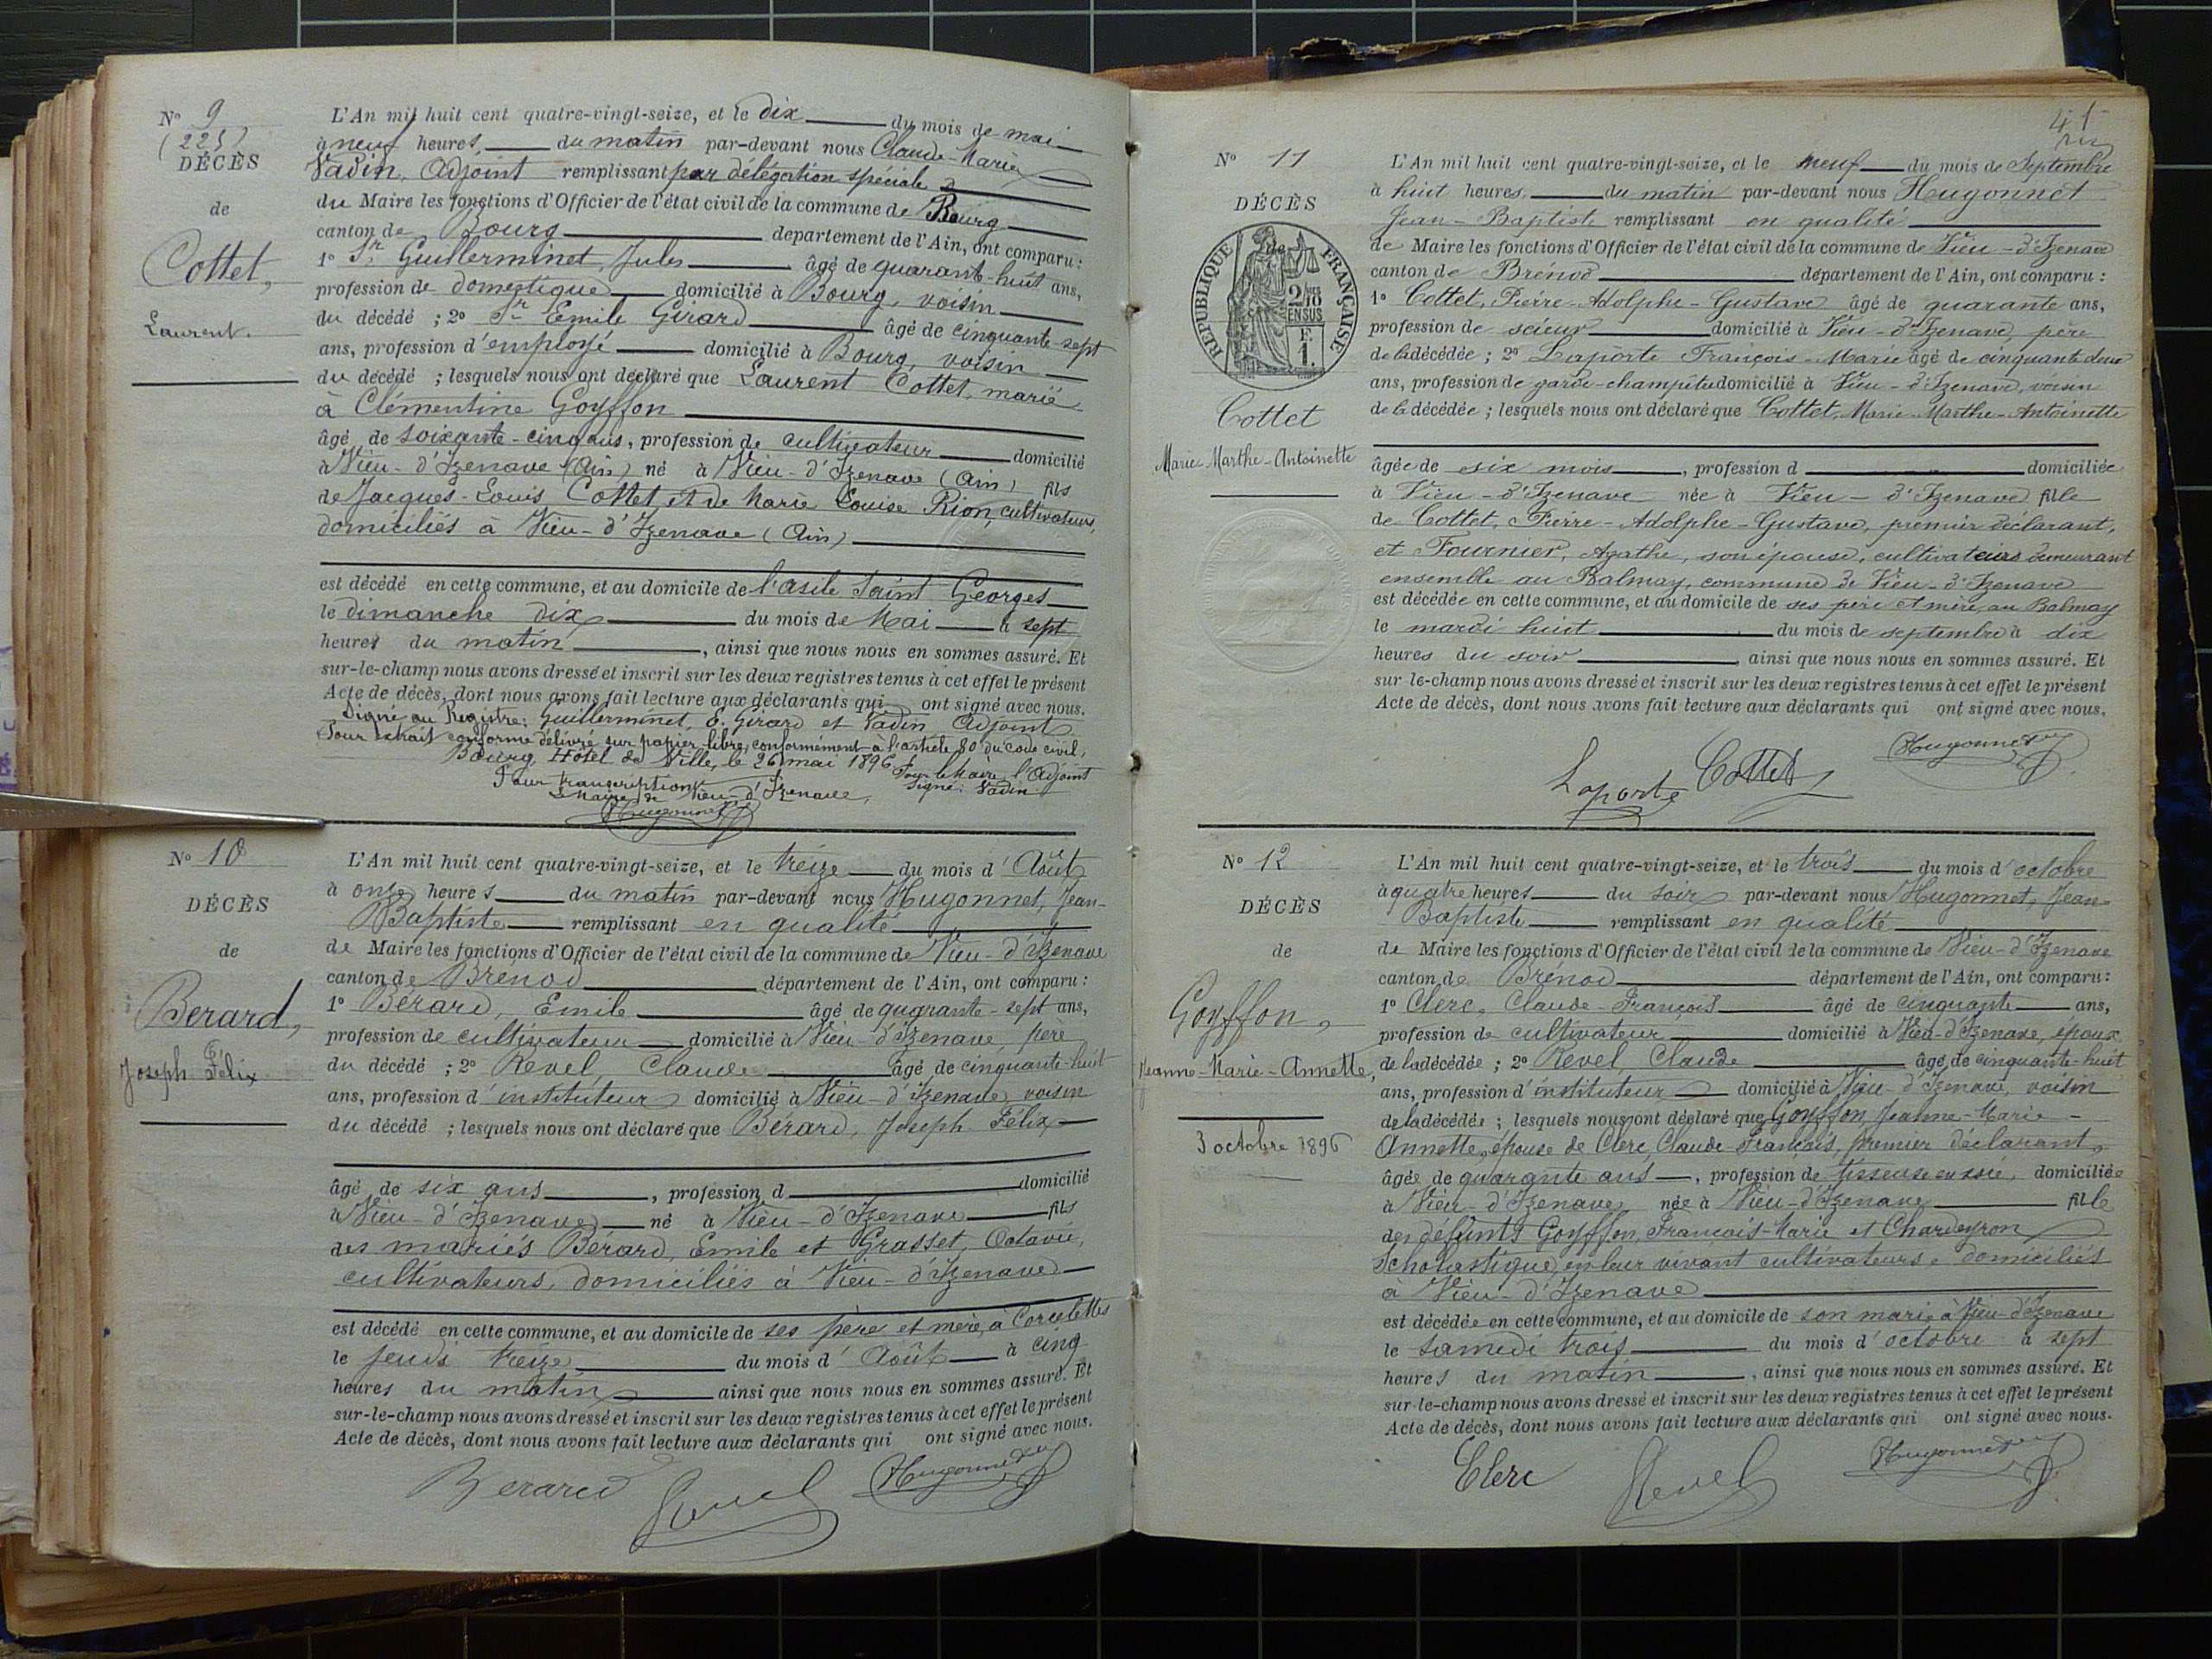 N° 9
(225)
DÉCÈS
de
Cottet,
Laurent.
L'An mil huit cent quatre-vingt-seize, et le dix du mois de mai
à neuf heures, du matin par-devant nous Claude-Marie
Vadin, Adjoint remplissant par délégation spéciale
du Maire les fonctions d'Officier de l'état civil de la commune de Bourg
canton de Bourg département de l'Ain, ont comparu :
1° Sr Guillerminet, Jules âgé de quarante-huit ans,
profession de domestique domicilié à Bourg, voisin
du décédé ; 2° Sr Emile Girard âgé de cinquante-sept
ans, profession d'employé domicilié à Bourg, voisin
du décédé ; lesquels nous ont déclaré que Laurent Cottet, marié
à Clémentine Goyffon
âgé de soixante-cinq ans, profession de cultivateur domicilié
à Vieu-d'Izenave (Ain) né à Vieu-d'Izenave (Ain) fils
de Jacques-Louis Cottet et de Marie Louise Rion, cultivateurs,
domiciliés à Vieu-d'Izenave (Ain)
est décédé en cette commune, et au domicile de l'asile Saint Georges
le dimanche dix du mois de Mai à sept
heures du matin, ainsi que nous nous en sommes assuré. Et
sur-le-champ nous avons dressé et inscrit sur les deux registres tenus à cet effet le présent
Acte de décès, dont nous avons fait lecture aux déclarants qui ont signé avec nous.
Signé au Registre: Guillerminet, E. Girard et Vadin Adjoint
Pour extrait conforme délivré sur papier libre, conformément à l'article 80 du code civil,
Bourg, Hôtel de Ville, le 26 mai 1896, Pour le Maire, l'Adjoint
Signé: Vadin
Pour transcription
Maire de Vieu-d'Izenave,
Hugonnet
N° 10
DÉCÈS
de
Berard,
Joseph Félix
L'An mil huit cent quatre-vingt-seize, et le treize du mois d'Août
à onze heures du matin par-devant nous Hugonnet, Jean-
Baptiste remplissant en qualité
de Maire les fonctions d'Officier de l'état civil de la commune de Vieu-d'Izenave
canton de Brénod département de l'Ain, ont comparu :
1° Bérard, Emile âgé de quarante-sept ans,
profession de cultivateur domicilié à Vieu-d'Izenave, père
du décédé ; 2° Revel, Claude âgé de cinquante-huit
ans, profession d'instituteur domicilié à Vieu-d'Izenave, voisin
du décédé ; lesquels nous ont déclaré que Bérard, Joseph Félix
âgé de six ans, profession d domicilié
à Vieu-d'Izenave né à Vieu-d'Izenave fils
des mariés Bérard, Emile et Grasset, Octavie,
cultivateurs, domiciliés à Vieu-d'Izenave
est décédé en cette commune, et au domicile de ses père et mère, à Corcelettes
le jeudi treize du mois d'Août à cinq
heures du matin ainsi que nous nous en sommes assuré. Et
sur-le-champ nous avons dressé et inscrit sur les deux registres tenus à cet effet le présent
Acte de décès, dont nous avons fait lecture aux déclarants qui ont signé avec nous.
Berard Revel Hugonnet
41
N° 11
DÉCÈS
de
RÉPUBLIQUE FRANÇAISE
2/10 EN SUS
F.
1.
Cottet
Marie-Marthe-Antoinette
L'An mil huit cent quatre-vingt-seize, et le neuf du mois de Septembre
à huit heures, du matin par-devant nous Hugonnet
Jean-Baptiste remplissant en qualité
de Maire les fonctions d'Officier de l'état civil de la commune de Vieu-d'Izenave
canton de Brénod département de l'Ain, ont comparu :
1° Cottet, Pierre-Adolphe-Gustave âgé de quarante ans,
profession de scieur domicilié à Vieu-d'Izenave, père
de la décédée ; 2° Laporte François-Marie âgé de cinquante deux
ans, profession de garde-champêtre domicilié à Vieu-d'Izenave, voisin
de la décédée ; lesquels nous ont déclaré que Cottet, Marie-Marthe-Antoinette
âgée de six mois, profession d domiciliée
à Vieu-d'Izenave née à Vieu-d'Izenave fille
de Cottet, Pierre-Adolphe-Gustave, premier déclarant,
et Fournier, Agathe, son épouse, cultivateurs demeurant
ensemble au Balmay, commune de Vieu-d'Izenave
est décédée en cette commune, et au domicile de ses père et mère, au Balmay
le mardi huit du mois de septembre à dix
heures du soir, ainsi que nous nous en sommes assuré. Et
sur-le-champ nous avons dressé et inscrit sur les deux registres tenus à cet effet le présent
Acte de décès, dont nous avons fait lecture aux déclarants qui ont signé avec nous.
Laporte Cottet Hugonnet
N° 12
DÉCÈS
de
Goyffon,
Jeanne-Marie-Annette,
3 octobre 1896
L'An mil huit cent quatre-vingt-seize, et le trois du mois d'octobre
à quatre heures du soir par-devant nous Hugonnet, Jean-
Baptiste remplissant en qualité
de Maire les fonctions d'Officier de l'état civil de la commune de Vieu-d'Izenave
canton de Brénod département de l'Ain, ont comparu :
1° Clerc, Claude-François âgé de cinquante ans,
profession de cultivateur domicilié à Vieu-d'Izenave, époux
de la décédée ; 2° Revel, Claude âgé de cinquante-huit
ans, profession d'instituteur domicilié à Vieu-d'Izenave, voisin
de la décédée ; lesquels nous ont déclaré que Goyffon, Jeanne-Marie-
Annette, épouse de Clerc, Claude-François, premier déclarant,
âgée de quarante ans, profession de tisseuse en soie, domiciliée
à Vieu-d'Izenave née à Vieu-d'Izenave fille
des défunts Goyffon, François-Marie et Chardeyron
Scholastique, en leur vivant cultivateurs, domiciliés
à Vieu-d'Izenave
est décédée en cette commune, et au domicile de son mari à Vieu-d'Izenave
le samedi trois du mois d'octobre à sept
heures du matin, ainsi que nous nous en sommes assuré. Et
sur-le-champ nous avons dressé et inscrit sur les deux registres tenus à cet effet le présent
Acte de décès, dont nous avons fait lecture aux déclarants qui ont signé avec nous.
Clerc Revel Hugonnet